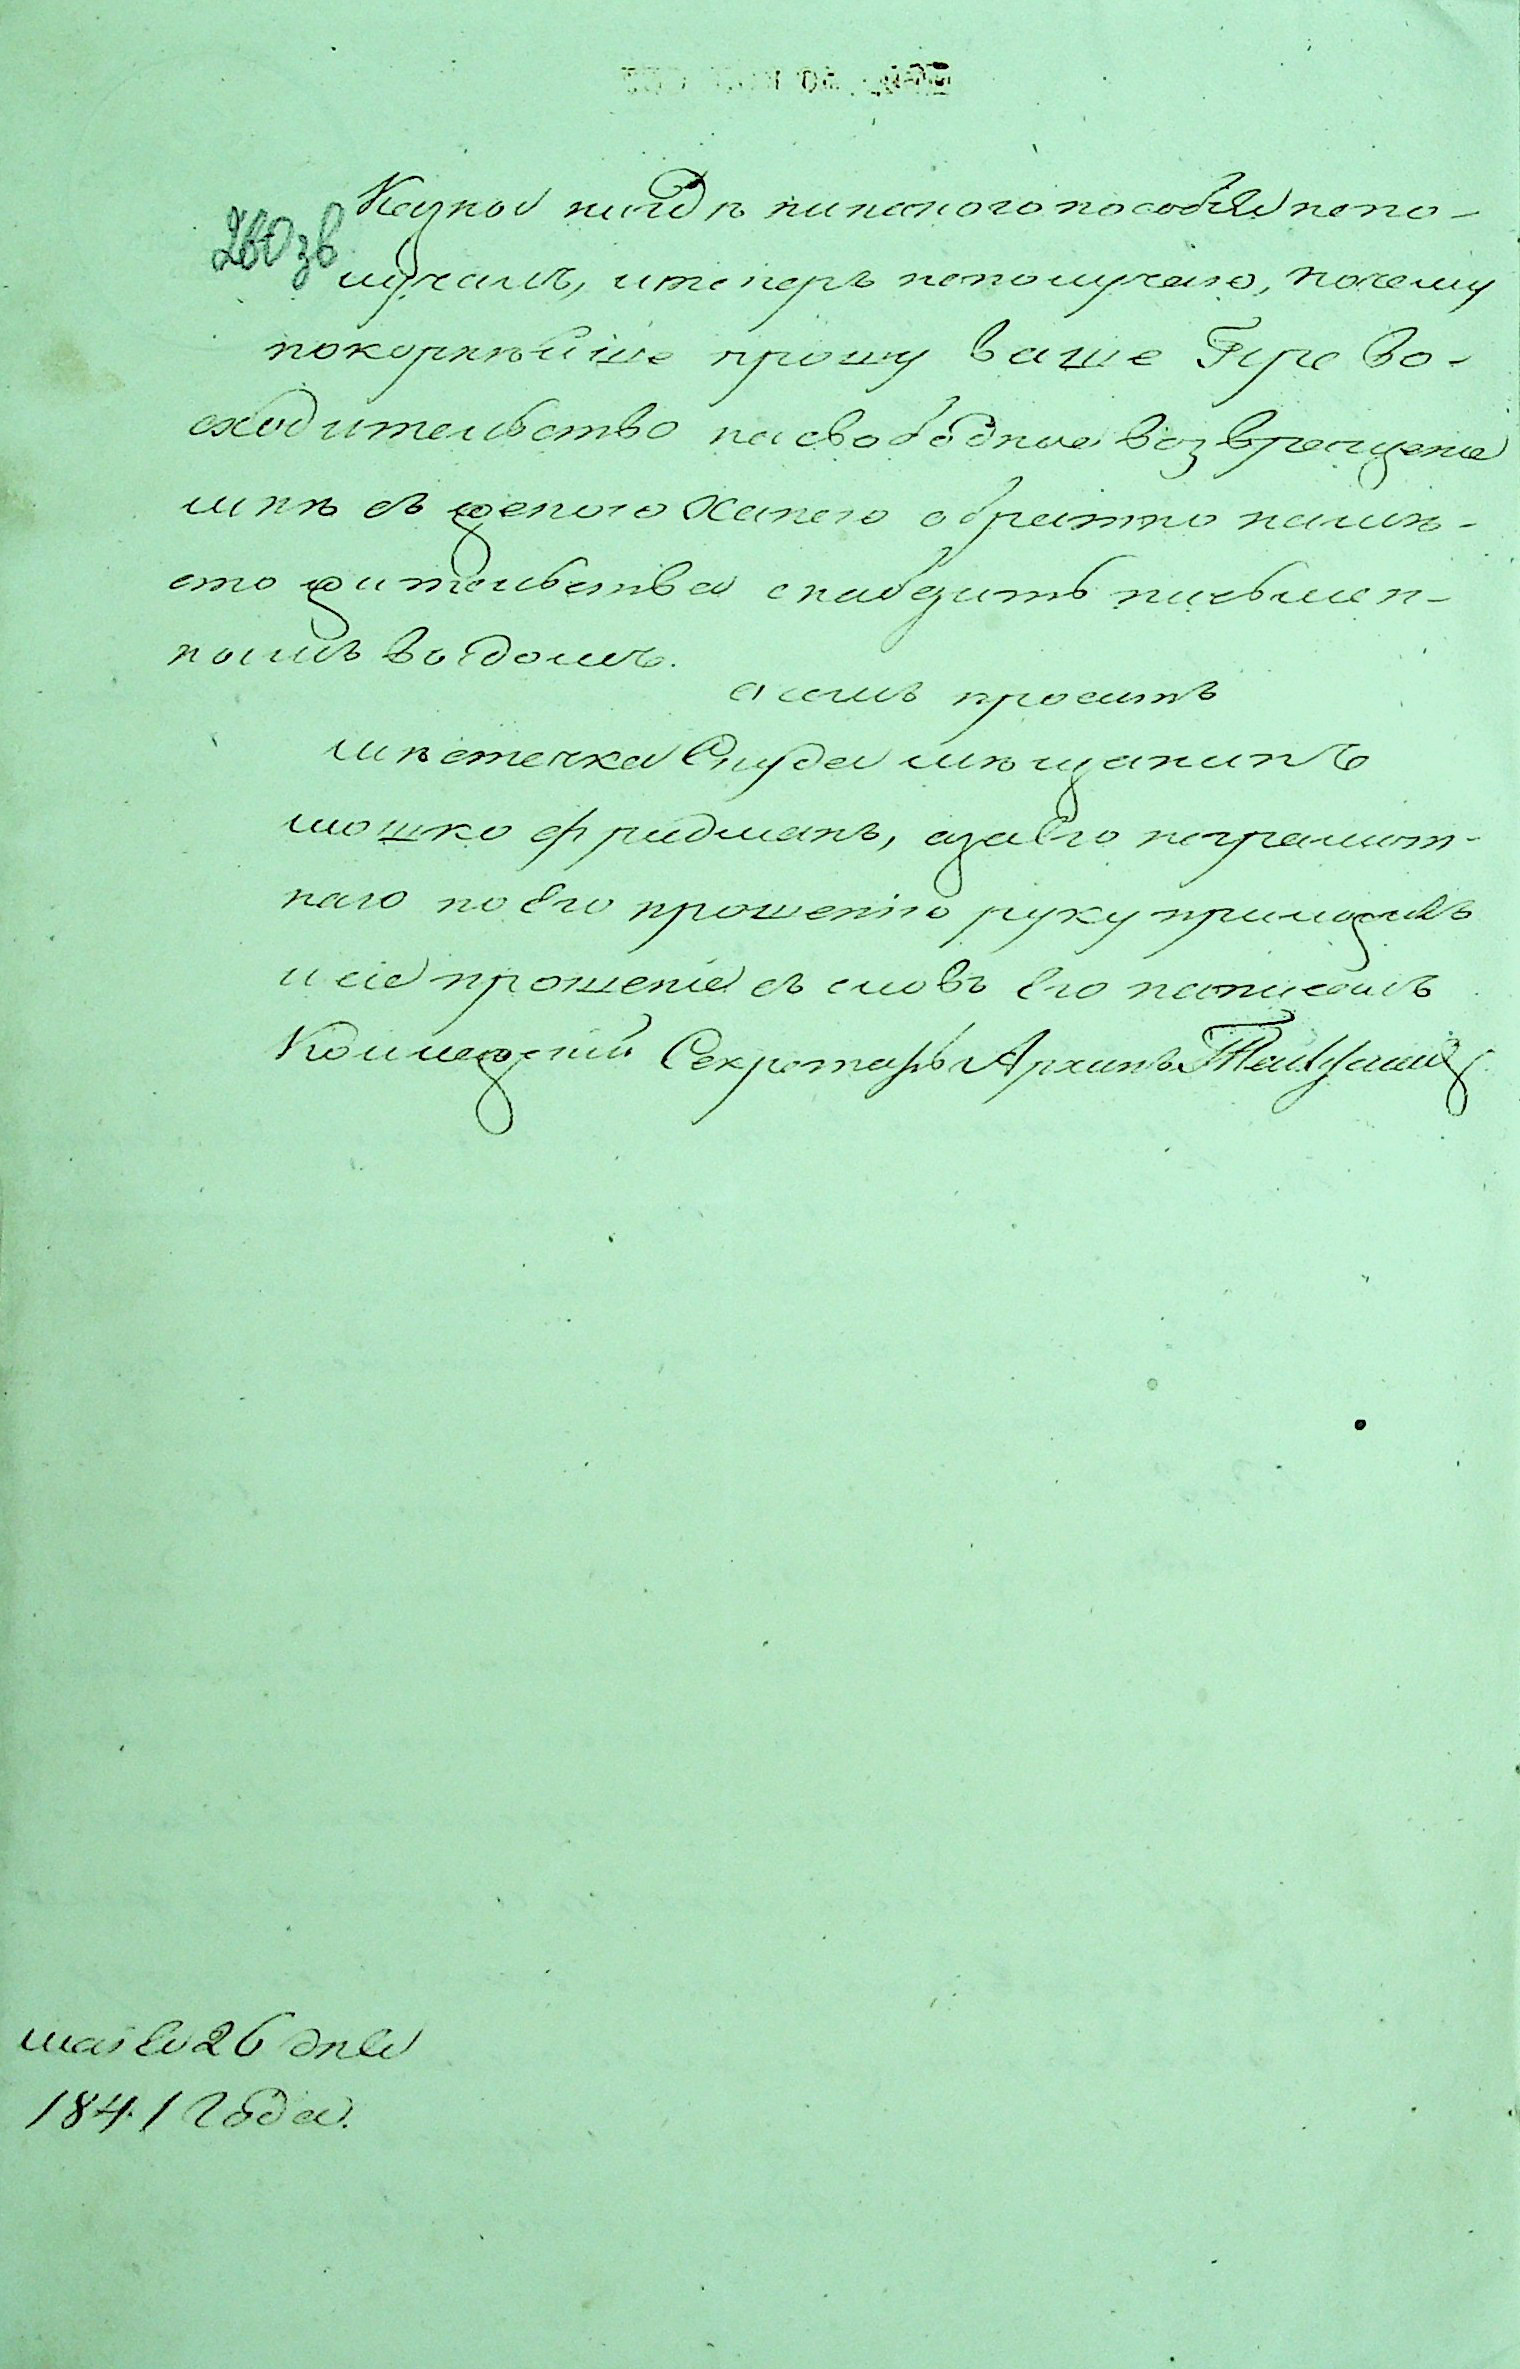 Казны нигдѣ никакого пособія непо-
лучалъ, итеперь неполучаю, почему
покорнѣйше прошу ваше Прево-
сходительство насвободное возвращение
мнѣ съ женою Ханею обратно намѣ-
сто жительства снабдить письмен-
нымъ видомъ.
осемъ проситъ
мѣстечка мѣщанинъ
мошко фридманъ, азаего неграмот-
наго по его прошенію руку приложилъ
и сіе прошеніе съ словъ его написалъ
Коллежскій Секретарь Архипъ
маія 26 дня
1841 года.